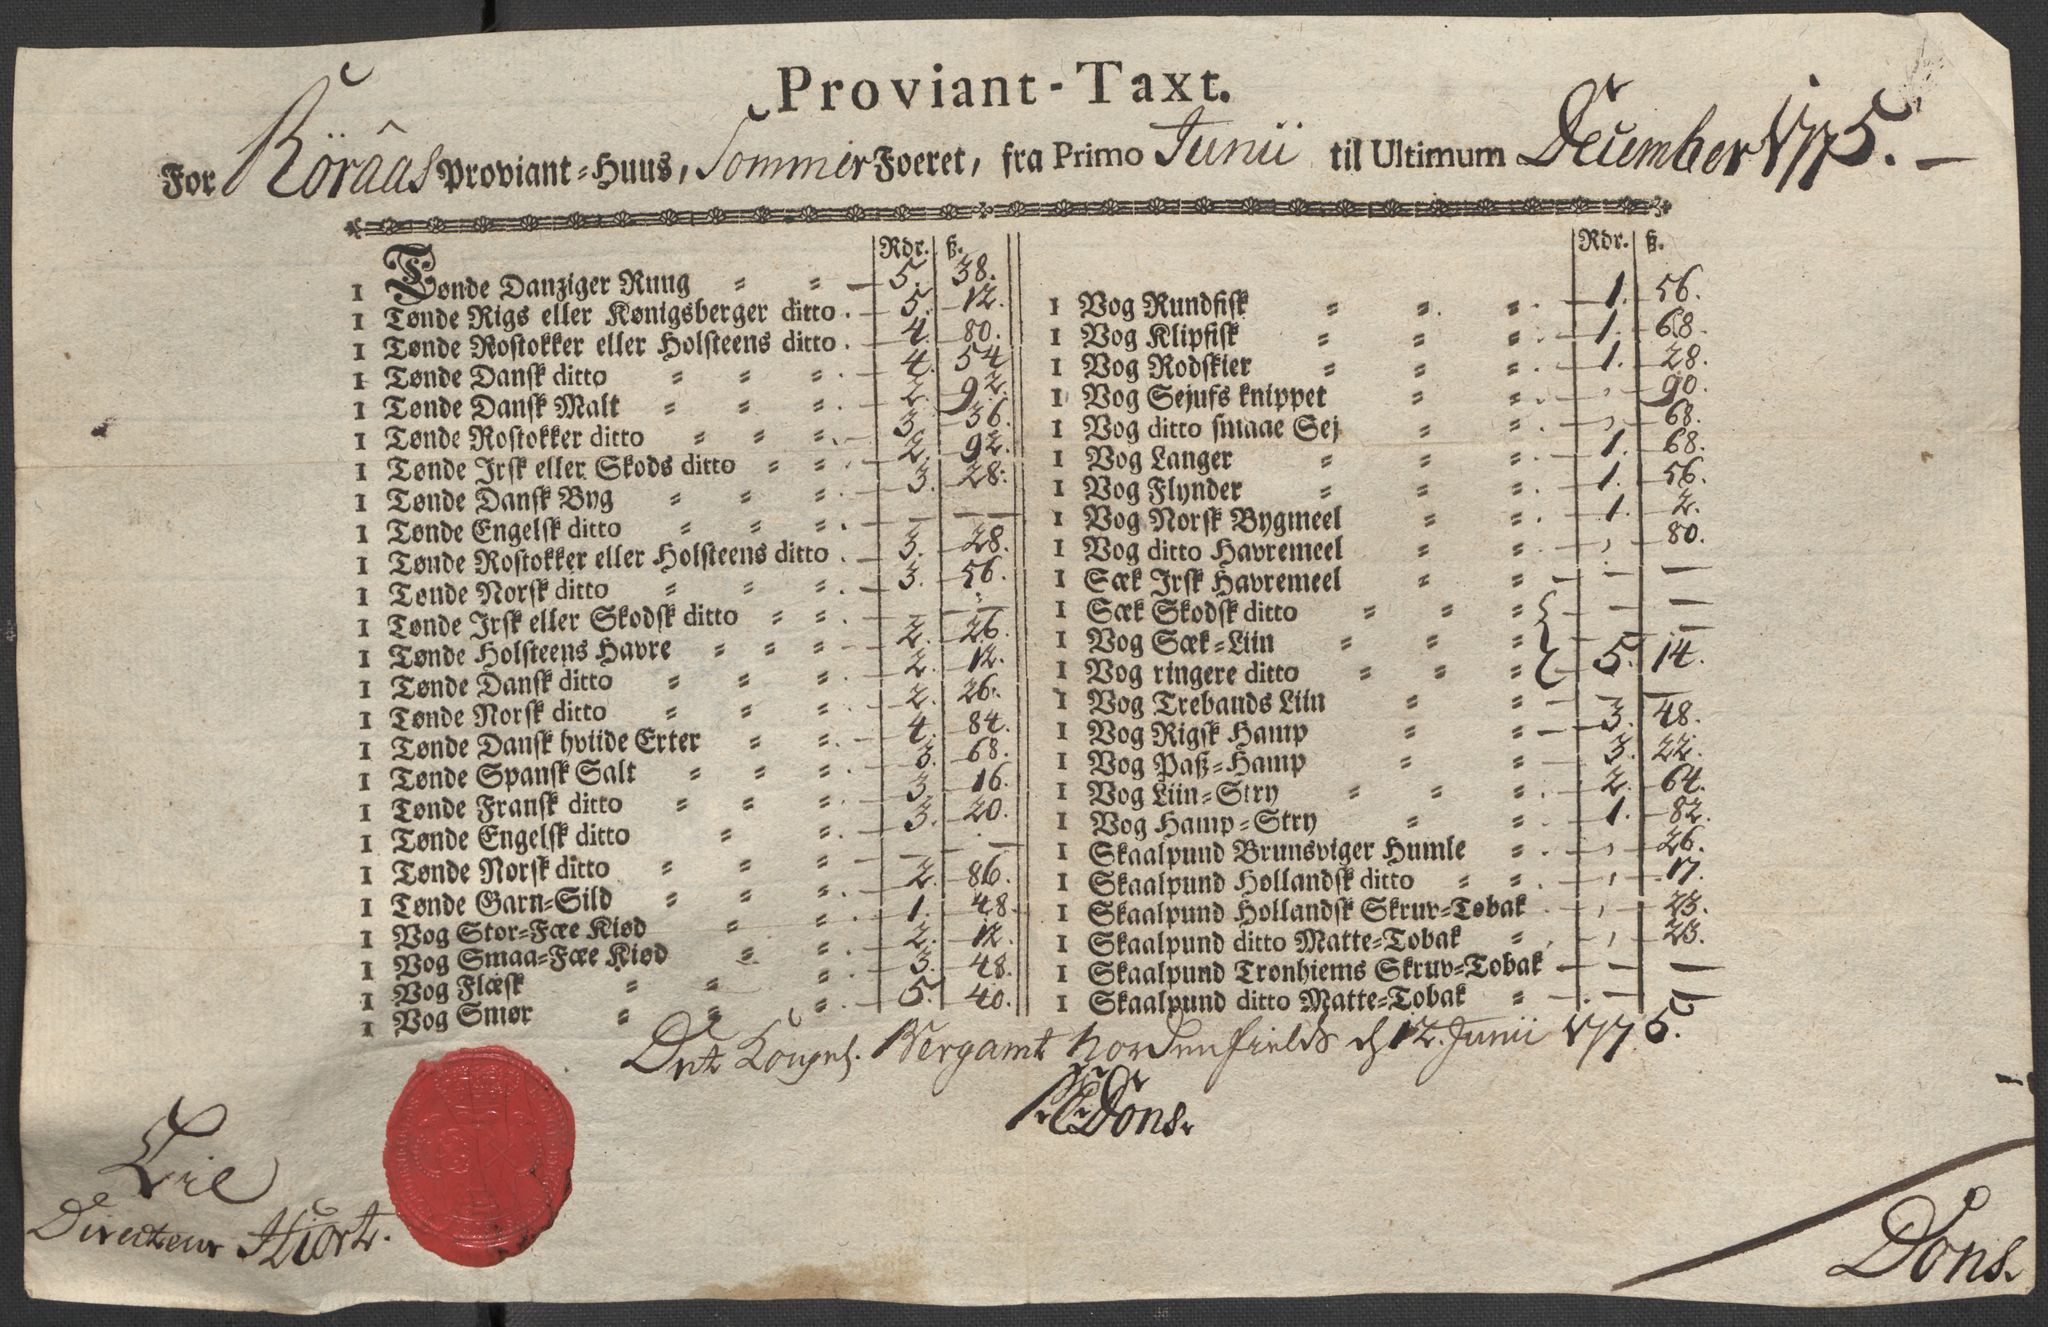 Proviant-Taxt.
For Röraas Proviant-Huus, Sommer Foeret, fra Primo Junii til Ultimum December 1775. —
Rdr. ß.
1 Tønde Danziger Rung 5. 38.
1 Tønde Rigs eller Kønigsberger ditto 5. 12.
1 Tønde Rostokker eller Holsteens ditto 4. 80.
1 Tønde Dansk ditto 4. 54
1 Tønde Dansk Malt 2. 92.
1 Tønde Rostokker ditto 3. 36
1 Tønde Irsk eller Skods ditto 2. 92.
1 Tønde Dansk Byg 3. 28.
1 Tønde Engelsk ditto — —
1 Tønde Rostokker eller Holsteens ditto 3. 28.
1 Tønde Norsk ditto 3. 56.
1 Tønde Irsk eller Skodsk ditto — —
1 Tønde Holsteens Havre 2. 26.
1 Tønde Dansk ditto 2. 12.
1 Tønde Norsk ditto 2. 26.
1 Tønde Dansk hviide Erter 4. 84.
1 Tønde Spansk Salt 3. 68.
1 Tønde Fransk ditto 3. 16.
1 Tønde Engelsk ditto 3. 20.
1 Tønde Norsk ditto — —
1 Tønde Garn-Sild 2. 86.
1 Vog Stor-Fæe Kiød 1. 48
1 Vog Smaa-Fæe Kiød 2. 12.
1 Vog Flæsk 3. 48.
1 Vog Smør 5. 40.
Rdr. ß.
1 Vog Rundfisk 1. 56.
1 Vog Klipfisk 1. 68.
1 Vog Rodskier 1. 28.
1 Vog Sejufs knippet , 90.
1 Vog ditto smaae Sej , 68.
1 Vog Langer 1. 68.
1 Vog Flynder 1. 56.
1 Vog Norsk Bygmeel 1. 2.
1 Vog ditto Havremeel , 80.
1 Sæk Irsk Havremeel — —
1 Sæk Skodsk ditto — —
1 Vog Sæk-Liin
1 Vog ringere ditto 5. 14.
1 Vog Trebands Liin — —
1 Vog Rigsk Hamp 3. 48.
1 Vog Paß-Hamp 3. 22.
1 Vog Liin-Stry 2. 64.
1 Vog Hamp-Stry 1. 82.
1 Skaalpund Brunsviger Humle , 26.
1 Skaalpund Hollandsk ditto , 17.
1 Skaalpund Hollandsk Skruv-Tobak , 23.
1 Skaalpund ditto Matte-Tobak , 23.
1 Skaalpund Trønhiems Skruv-Tobak — —
1 Skaalpund ditto Matte-Tobak — —
Det Kongel. Bergamt Nordenfields d 12. Junii 1775.
Dons.
Directeur Hiort.
Dons.